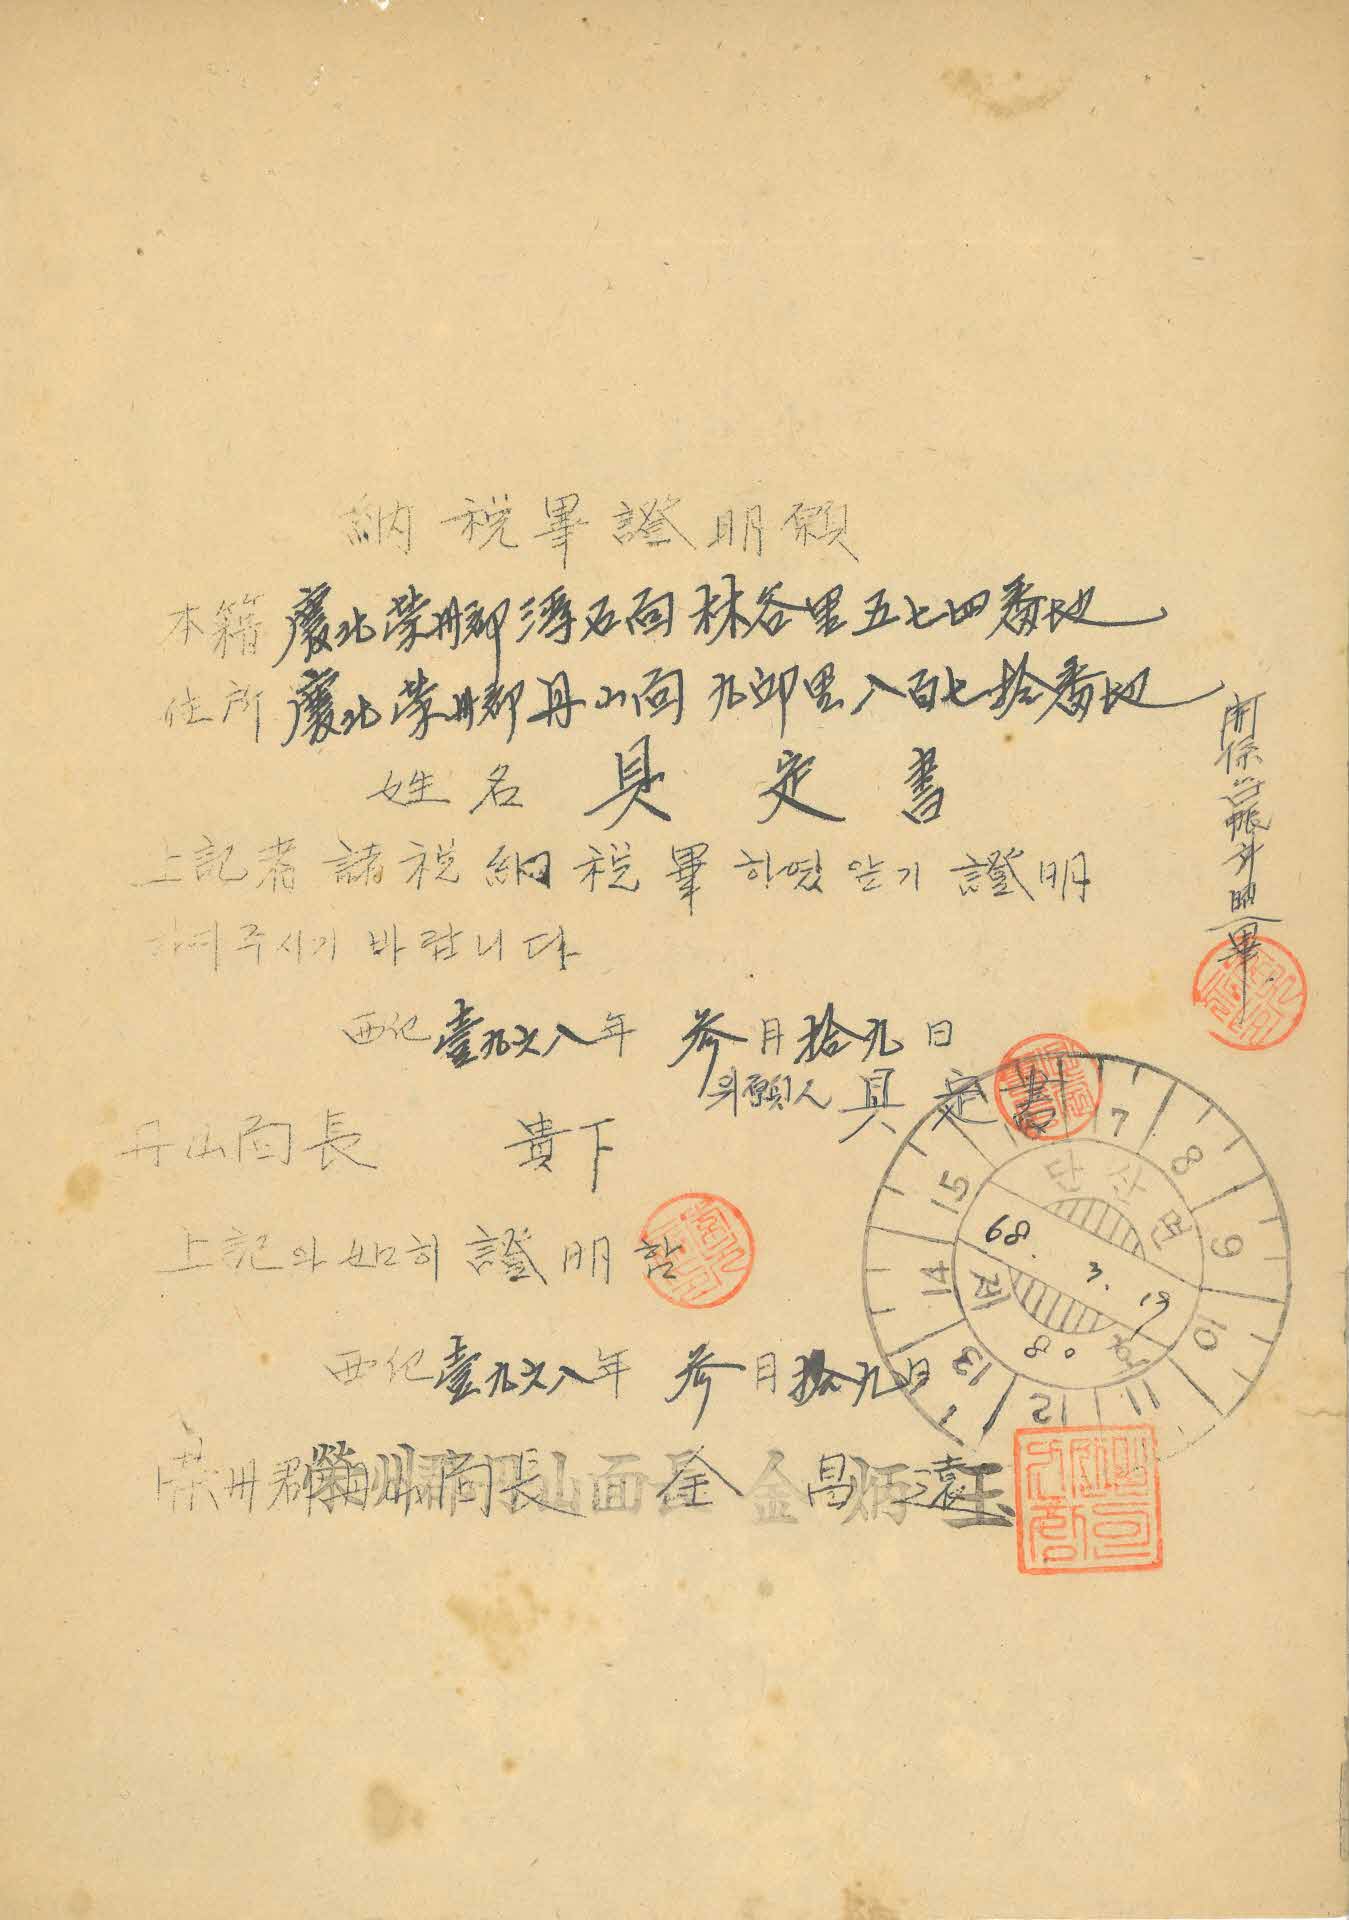 納稅畢證明願
本籍 慶北榮州郡浮石面林谷里五七四番地
住所 慶北榮州郡丹山面九邱里八百七拾番地
姓名 具定書
上記者諸稅納稅畢하였앋기 證明
하여주시기 바랍니다
西紀壹九六八年 參月拾九日
右願人 具定書
丹山面長 貴下
上記와如히 證明함
西紀壹九六八年 參月拾九日
榮州郡丹山面長 金昌遠
關係台帳对照畢
단산면
68. 3. 19
80
7 8 9 10 11 12 13 14 15